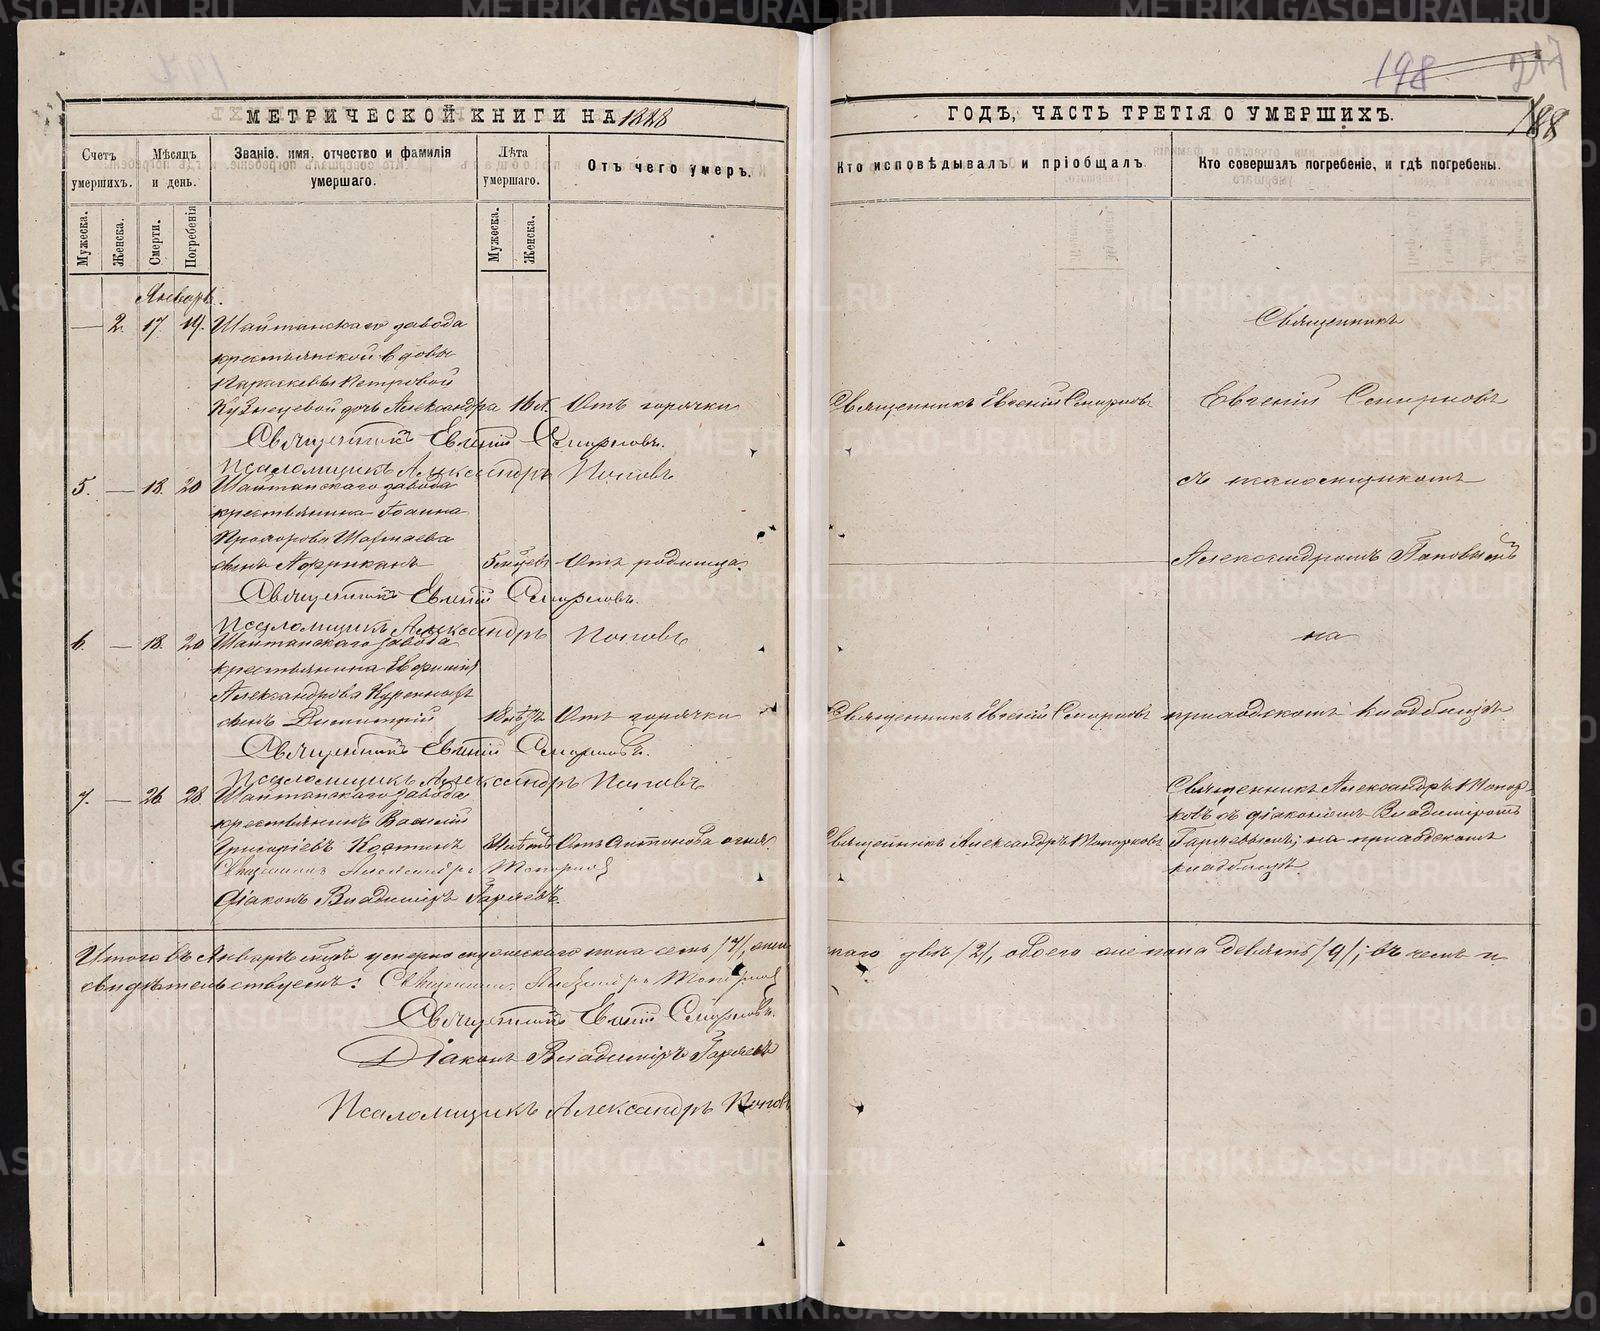 198 217
МЕТРИЧЕСКОЙ КНИГИ НА 1888
ГОДЪ, ЧАСТЬ ТРЕТІЯ О УМЕРШИХЪ.
188
Счетъ умершихъ.
Мѣсяцъ и день.
Званіе, имя, отчество и фамилія умершаго.
Лѣта умершаго.
Отъ чего умеръ.
Кто исповѣдывалъ и пріобщалъ
Кто совершалъ погребеніе, и гдѣ погребены.
Мужеска.
Женска.
Смерти.
Погребенія
Мужеска.
Женска.
Январь.
— 2. 17. 19. Шайтанскаго завода
крестьянской вдовы
Параскевы Петровой
Кузнецовой дочь Александра 16 л. Отъ горячки
Священникъ Евгеній Смирновъ
Священникъ Евгеній Смирновъ.
Псаломщикъ Александръ Поповъ
5. — 18. 20 Шайтанскаго завода
крестьянина Іоанна
Прохорова
сынъ Африканъ Отъ родимца.
Священникъ Евгеній Смирновъ.
Псаломщикъ Александръ Поповъ
6. — 18. 20 Шайтанскаго завода
крестьянина
Александрова
сынъ Димитрій Отъ горячки
Священникъ Евгеній Смирновъ
Священникъ Евгеній Смирновъ.
Псаломщикъ Александръ Поповъ
7. — 26 28 Шайтанскаго завода
крестьянинъ Василій
Григоріевъ Костинъ Отъ Антонова огня.
Священникъ Александръ Топорковъ
Священникъ Александръ Топорковъ
Діаконъ Владиміръ Гаряевъ.
Священникъ
Евгеній Смирновъ
съ псаломщикомъ
Александромъ Поповымъ
на
приходскомъ кладбищѣ
Священникъ Александръ Топор-
ковъ съ діакономъ Владиміромъ
Гаряевымъ; на приходскомъ
кладбищѣ.
Итого въ Январѣ м-цѣ умерло мужескаго пола семь /7/, жен-
скаго двѣ /2/, обоего же пола девять /9/; въ чемъ и
свидѣтельствуемъ: Священникъ Александръ Топорковъ
Священникъ Евгеній Смирновъ.
Діаконъ Владиміръ Гаряевъ
Псаломщикъ Александръ Поповъ
METRIKI.GASO-URAL.RU